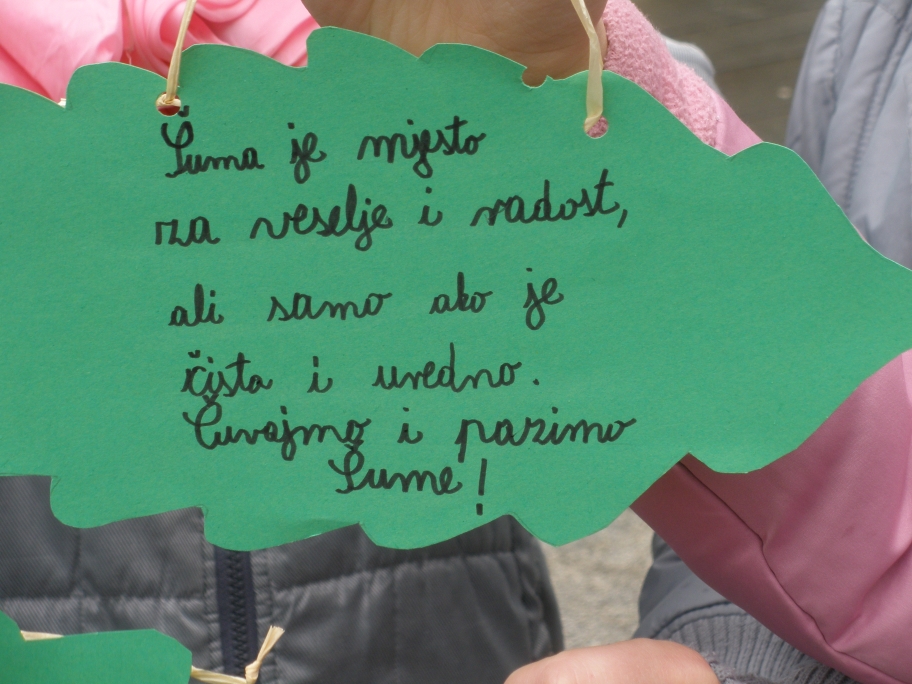 Šuma je mjesto
za veselje i radost,
ali samo ako je
čista i uredno.
Čuvajmo i pazimo
Šume!